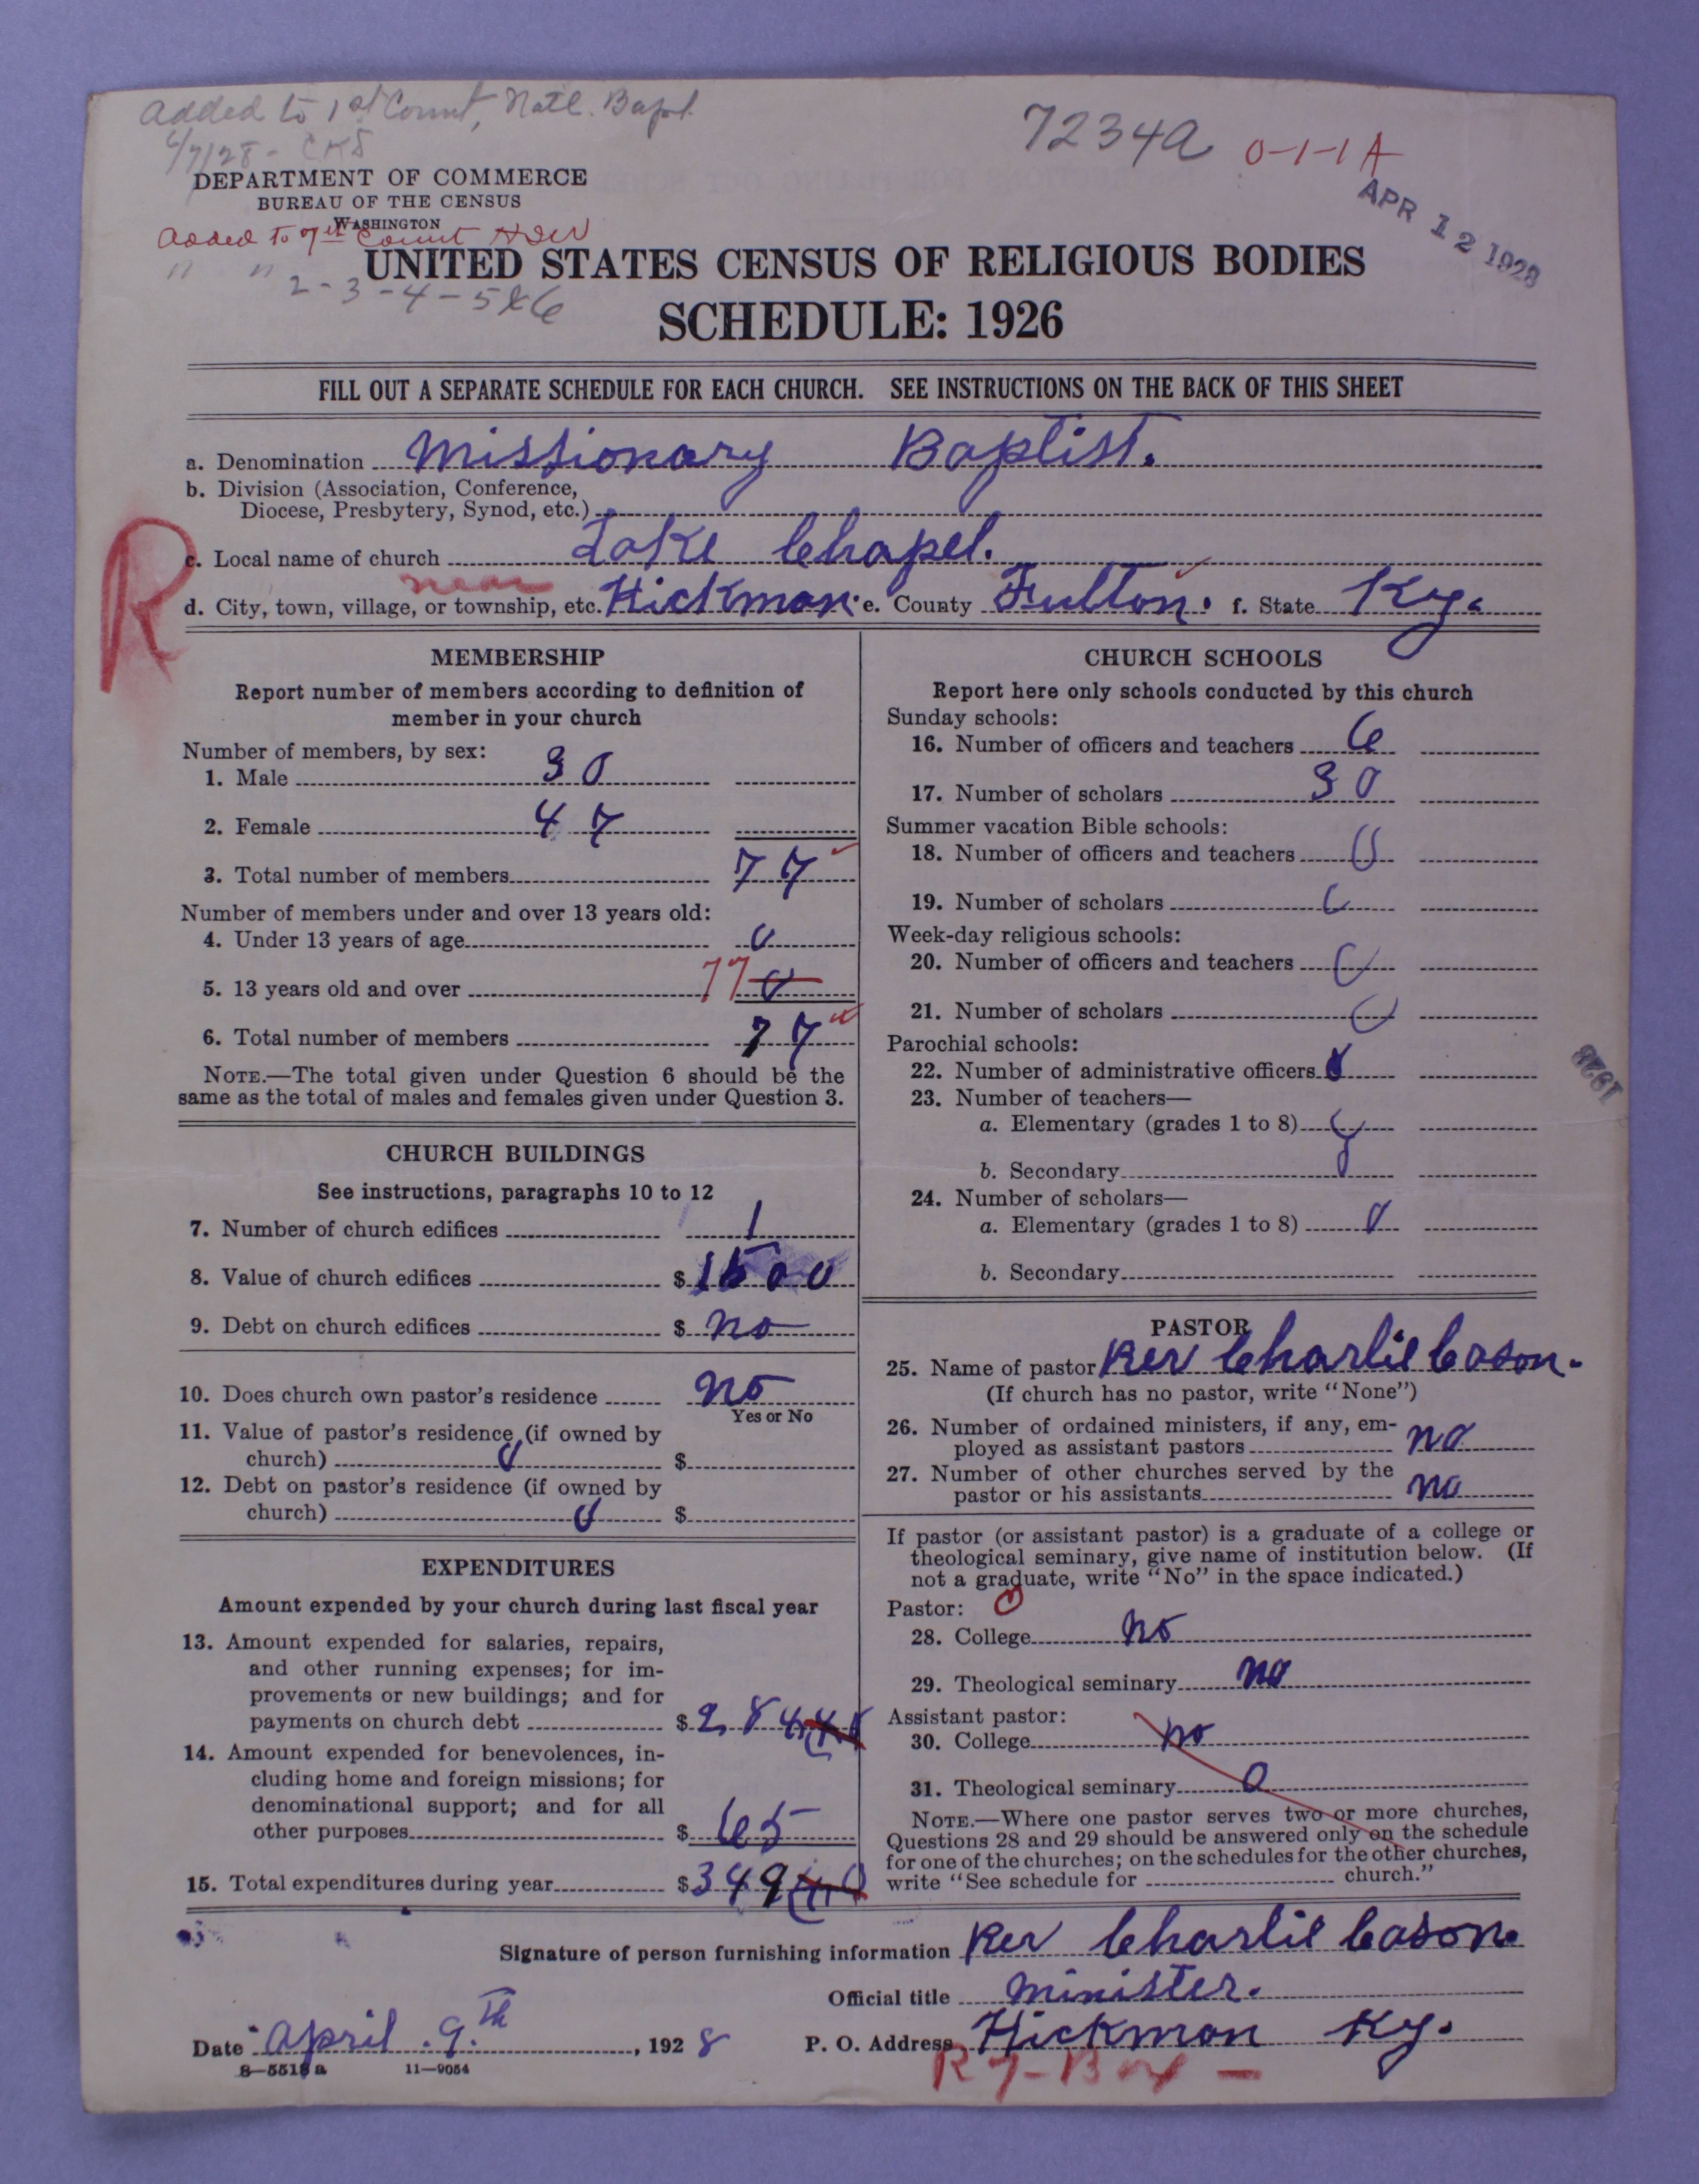 Added to 1st Count, Natl. Bapt.
6/7/28 - CKS
7234a 0-1-1A
APR 12 1928
DEPARTMENT OF COMMERCE
BUREAU OF THE CENSUS
WASHINGTON
Added to 7th Count
" " 2-3-4-5&6
UNITED STATES CENSUS OF RELIGIOUS BODIES
SCHEDULE: 1926
FILL OUT A SEPARATE SCHEDULE FOR EACH CHURCH. SEE INSTRUCTIONS ON THE BACK OF THIS SHEET
R
a. Denomination Missionary Baptist.
b. Division (Association, Conference,
Diocese, Presbytery, Synod, etc.)
c. Local name of church Lake Chapel.
near
d. City, town, village, or township, etc. Hickman. e. County Fulton. f. State Ky.
MEMBERSHIP
Report number of members according to definition of
member in your church
Number of members, by sex:
1. Male 30
2. Female 47
3. Total number of members 77
Number of members under and over 13 years old:
4. Under 13 years of age 0
5. 13 years old and over 77 0
6. Total number of members 77
NOTE.—The total given under Question 6 should be the
same as the total of males and females given under Question 3.
CHURCH BUILDINGS
See instructions, paragraphs 10 to 12
7. Number of church edifices 1
8. Value of church edifices $1500
9. Debt on church edifices $ no
10. Does church own pastor's residence no
Yes or No
11. Value of pastor's residence (if owned by
church) 0 $
12. Debt on pastor's residence (if owned by
church) 0 $
EXPENDITURES
Amount expended by your church during last fiscal year
13. Amount expended for salaries, repairs,
and other running expenses; for im-
provements or new buildings; and for
payments on church debt $284
14. Amount expended for benevolences, in-
cluding home and foreign missions; for
denominational support; and for all
other purposes $65
15. Total expenditures during year $349
CHURCH SCHOOLS
Report here only schools conducted by this church
Sunday schools:
16. Number of officers and teachers 6
17. Number of scholars 30
Summer vacation Bible schools:
18. Number of officers and teachers 0
19. Number of scholars 0
Week-day religious schools:
20. Number of officers and teachers 0
21. Number of scholars 0
Parochial schools:
22. Number of administrative officers
23. Number of teachers—
a. Elementary (grades 1 to 8)
b. Secondary
24. Number of scholars—
a. Elementary (grades 1 to 8) 0
b. Secondary
1928
PASTOR
25. Name of pastor Rev Charlie Cason.
(If church has no pastor, write "None")
26. Number of ordained ministers, if any, em-
ployed as assistant pastors no
27. Number of other churches served by the
pastor or his assistants no
If pastor (or assistant pastor) is a graduate of a college or
theological seminary, give name of institution below. (If
not a graduate, write "No" in the space indicated.)
Pastor: 0
28. College no
29. Theological seminary no
Assistant pastor:
30. College no
31. Theological seminary 0
NOTE.—Where one pastor serves two or more churches,
Questions 28 and 29 should be answered only on the schedule
for one of the churches; on the schedules for the other churches,
write "See schedule for church."
Signature of person furnishing information Rev Charlie Cason.
Official title Minister.
Date April 9.th, 1928 P. O. Address Hickman Ky.
8—5518a 11—9054
R 7 - Box -